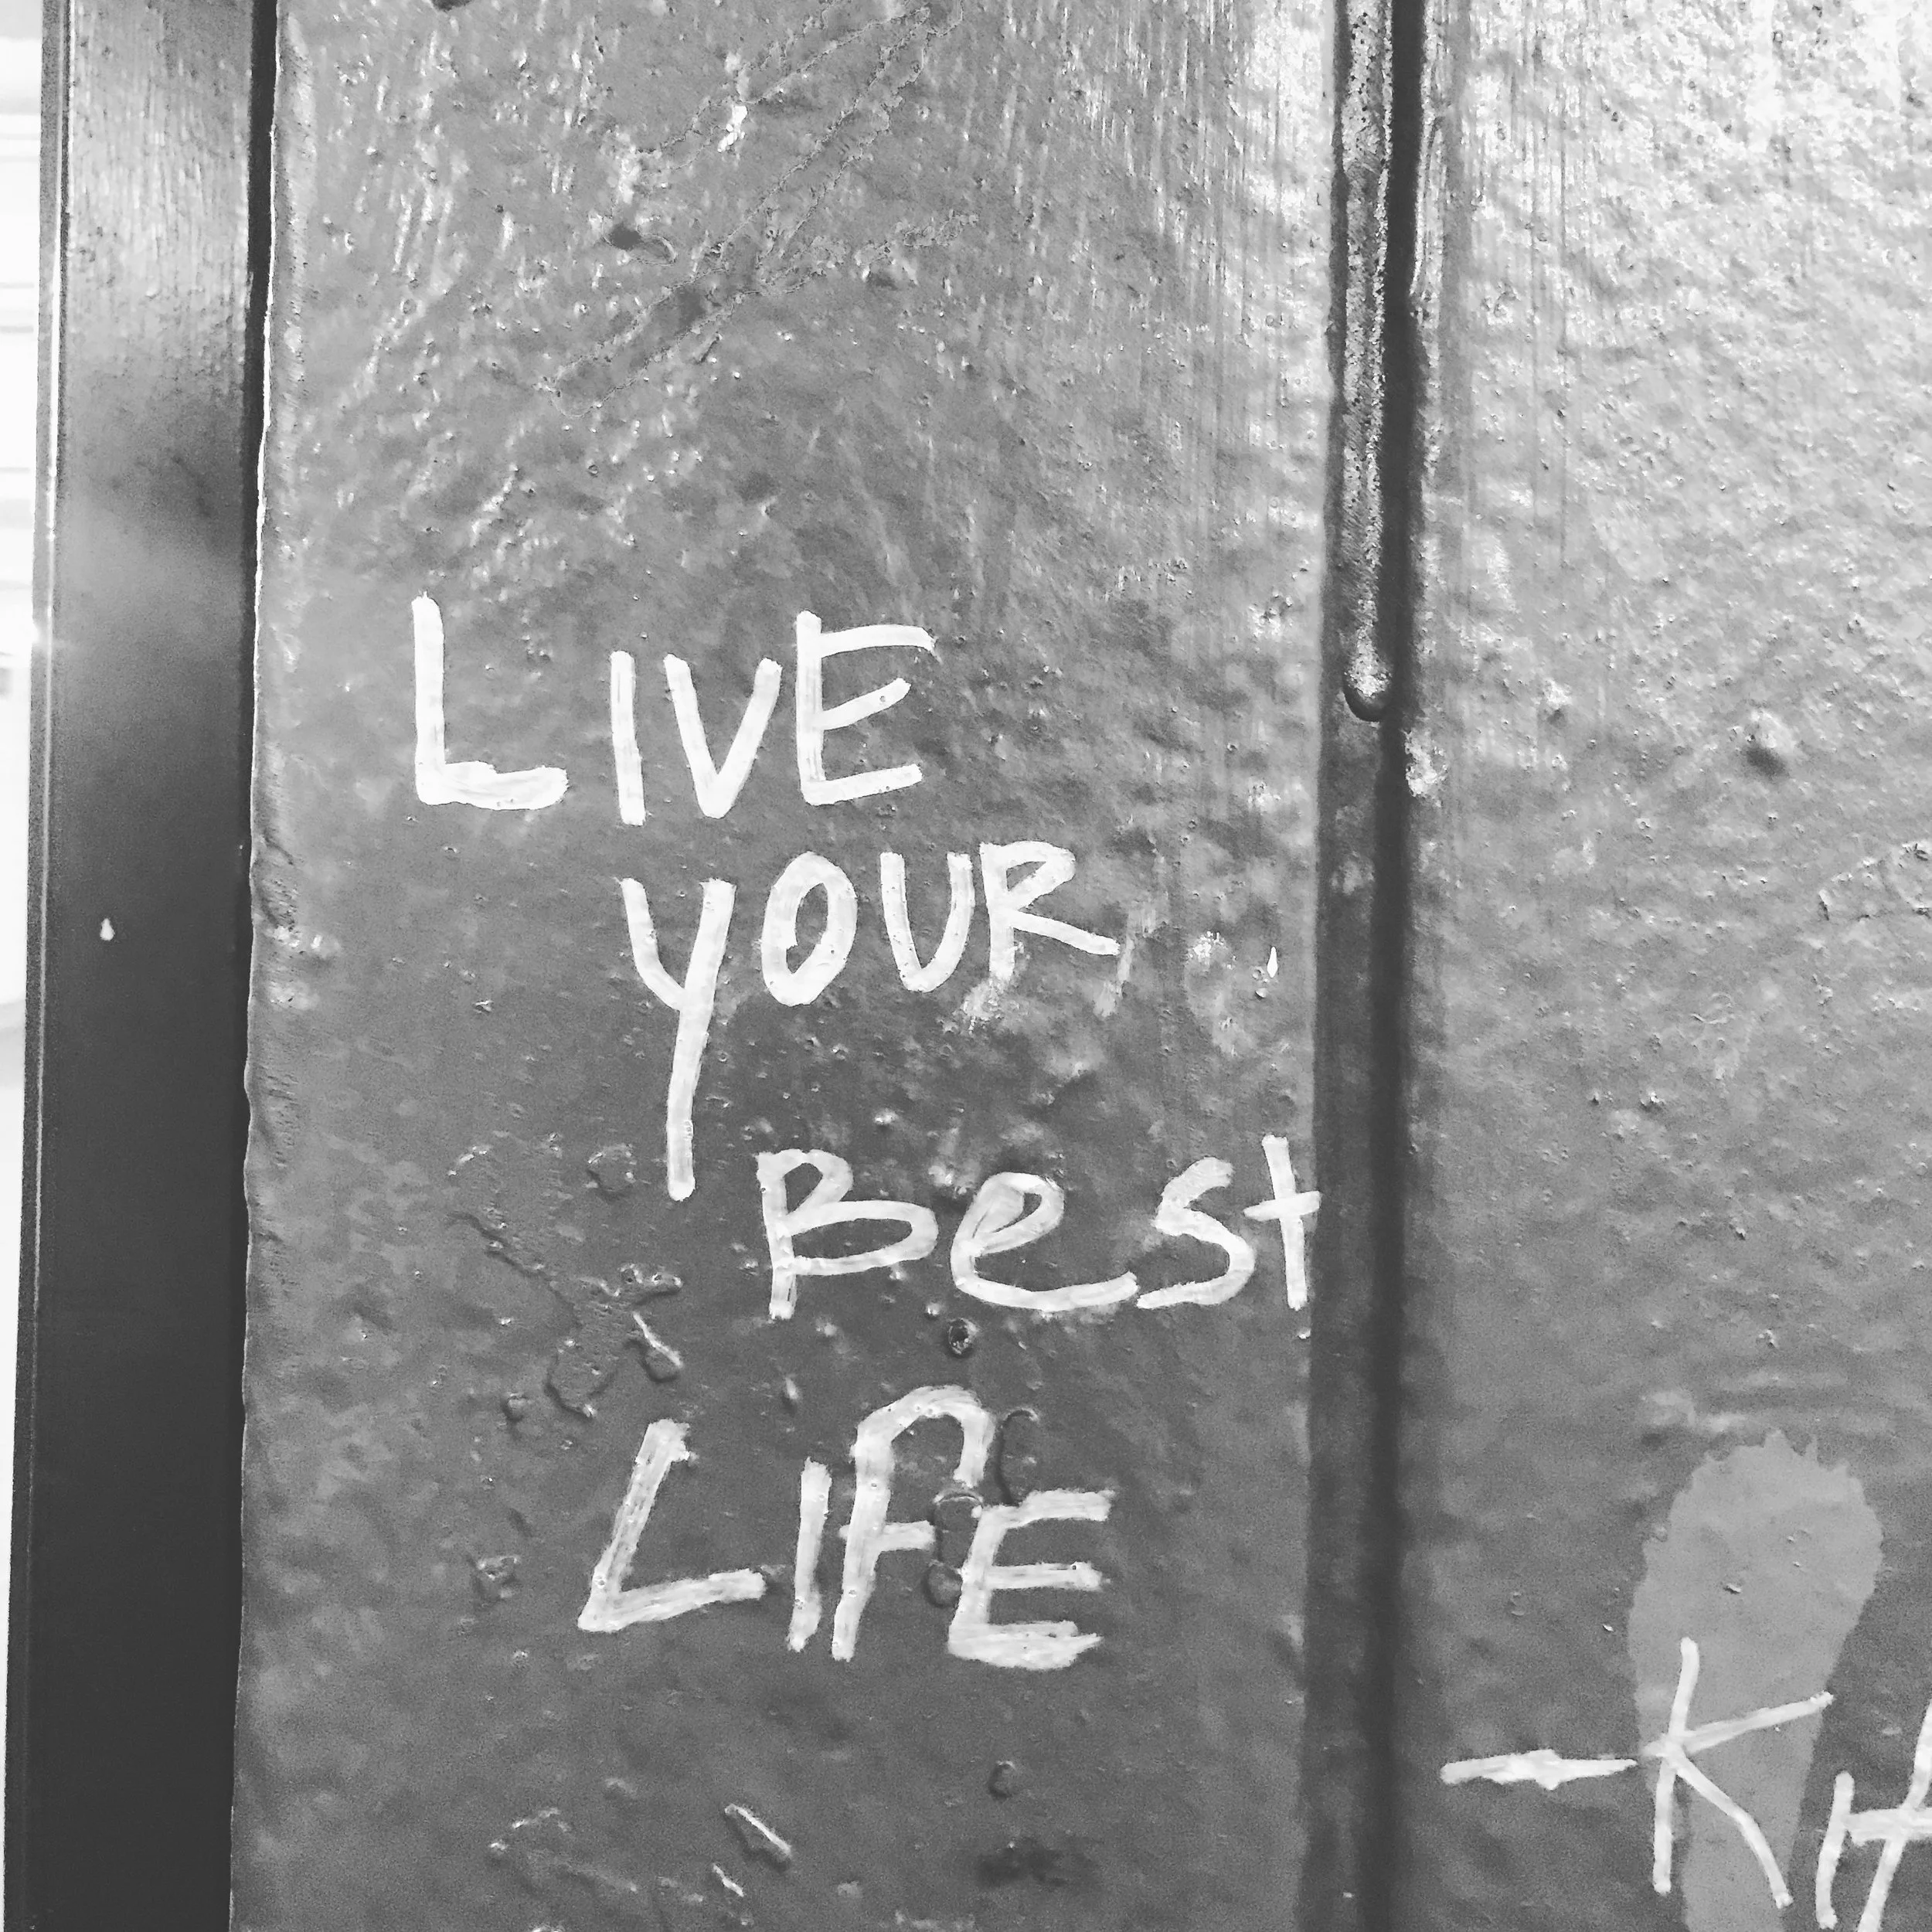 LIVE
YOUR
Best
LIFE